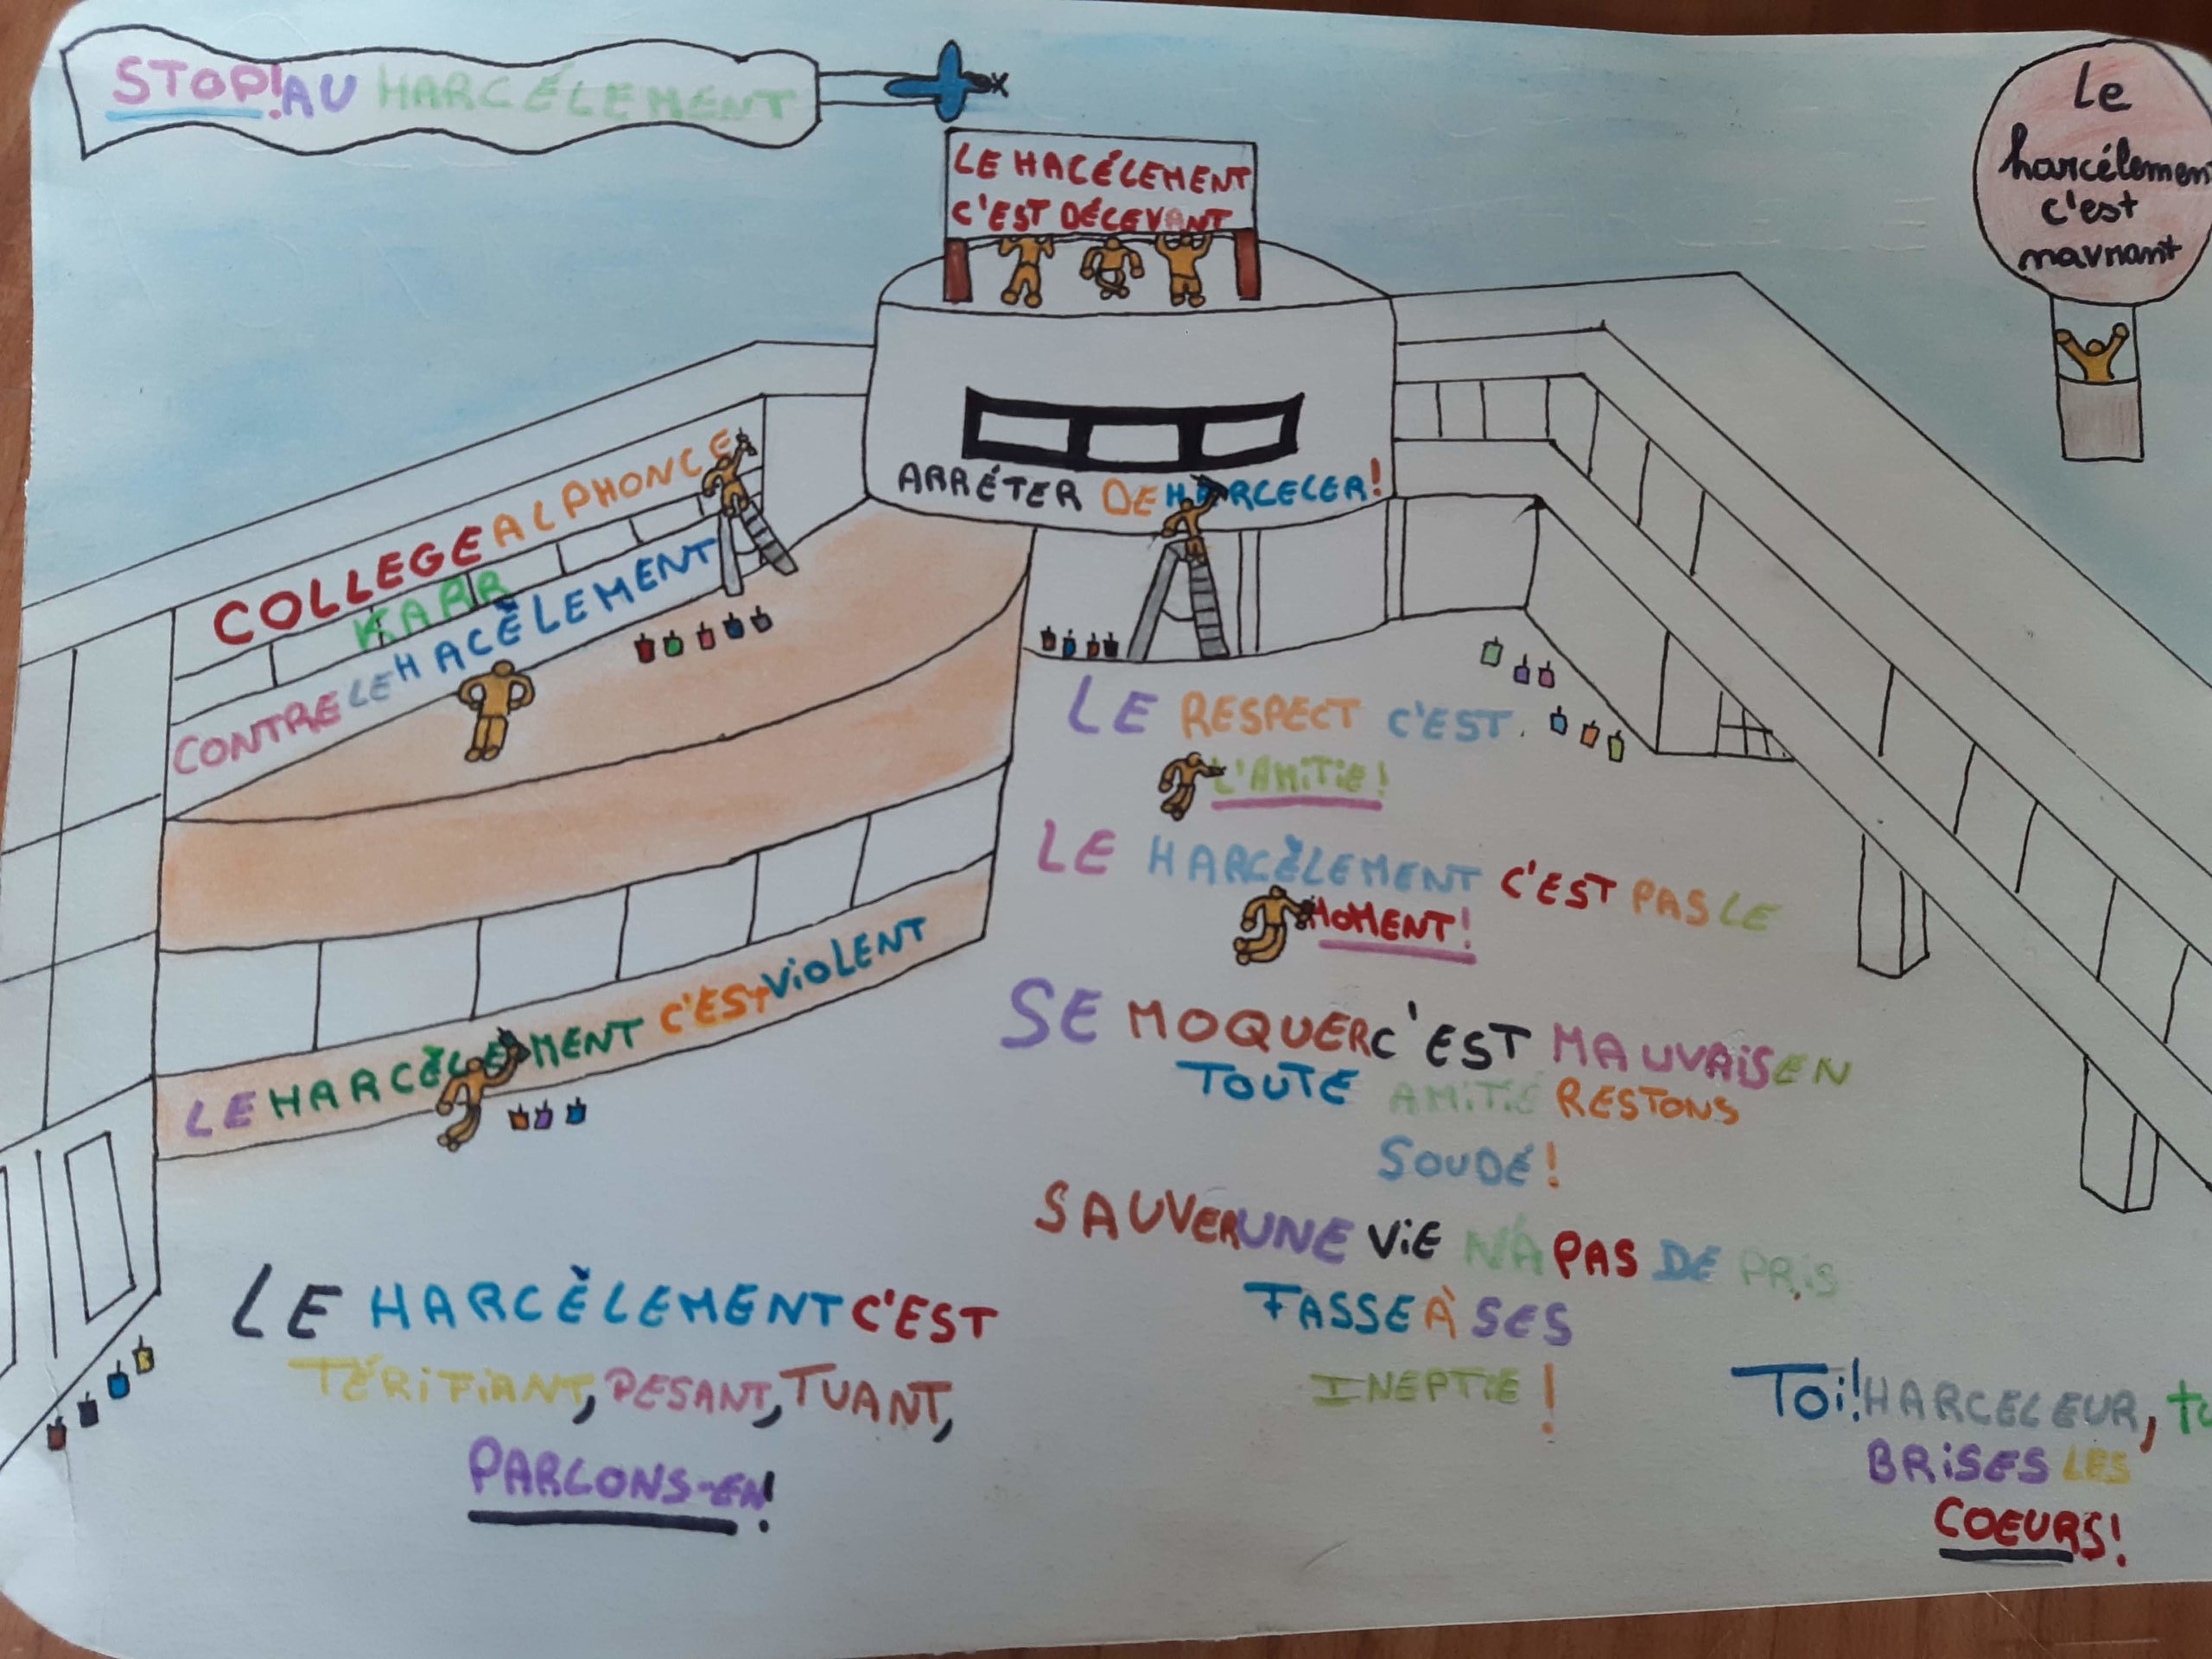 STOP! AU HARCÉLEMENT
LE HACÉLEMENT
C'EST DÉCEVANT
Le
harcélement
c'est
navrant
ARRÉTER DE HARCELER!
COLLEGE ALPHONCE
KARR
CONTRE LE HACÈLEMENT
LE RESPECT C'EST
L'AMITIE!
LE HARCÈLEMENT C'EST PAS LE
MOMENT!
SE MOQUER C'EST MAUVAIS EN
TOUTE AMITIÉ RESTONS
SOUDÉ!
LE HARCÈLEMENT C'EST VIOLENT
SAUVER UNE VIE N'A PAS DE PRIS
FASSE À SES
INEPTIE!
LE HARCÈLEMENT C'EST
TÉRIFIANT, PESANT, TUANT,
PARLONS-EN!
TOI! HARCELEUR, tu
BRISES LES
COEURS!